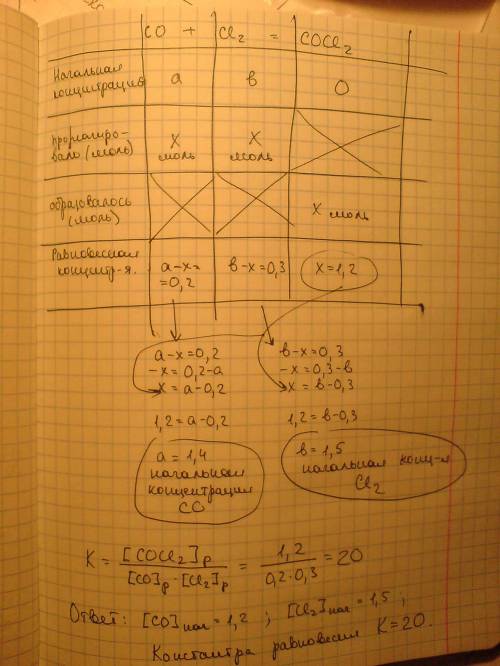 CO + Cl₂ = COCl₂
Начальная концентрация a в 0
прореагировало (моль) X моль X моль
образовалось (моль) X моль
Равновесная концентр-я. a-x= =0,2 в-x=0,3 X=1,2
a-x=0,2
-x=0,2-a
x=a-0,2
в-x=0,3
-x=0,3-в
x=в-0,3
1,2=a-0,2
1,2=в-0,3
a=1,4
начальная
концентрация
CO
в=1,5
начальная конц-я
Cl₂
K = [COCl₂]р / [CO]р·[Cl₂]р = 1,2 / 0,2·0,3 = 20
Ответ: [CO]нач=1,2 ; [Cl₂]нач=1,5 ;
Константа равновесия K=20.